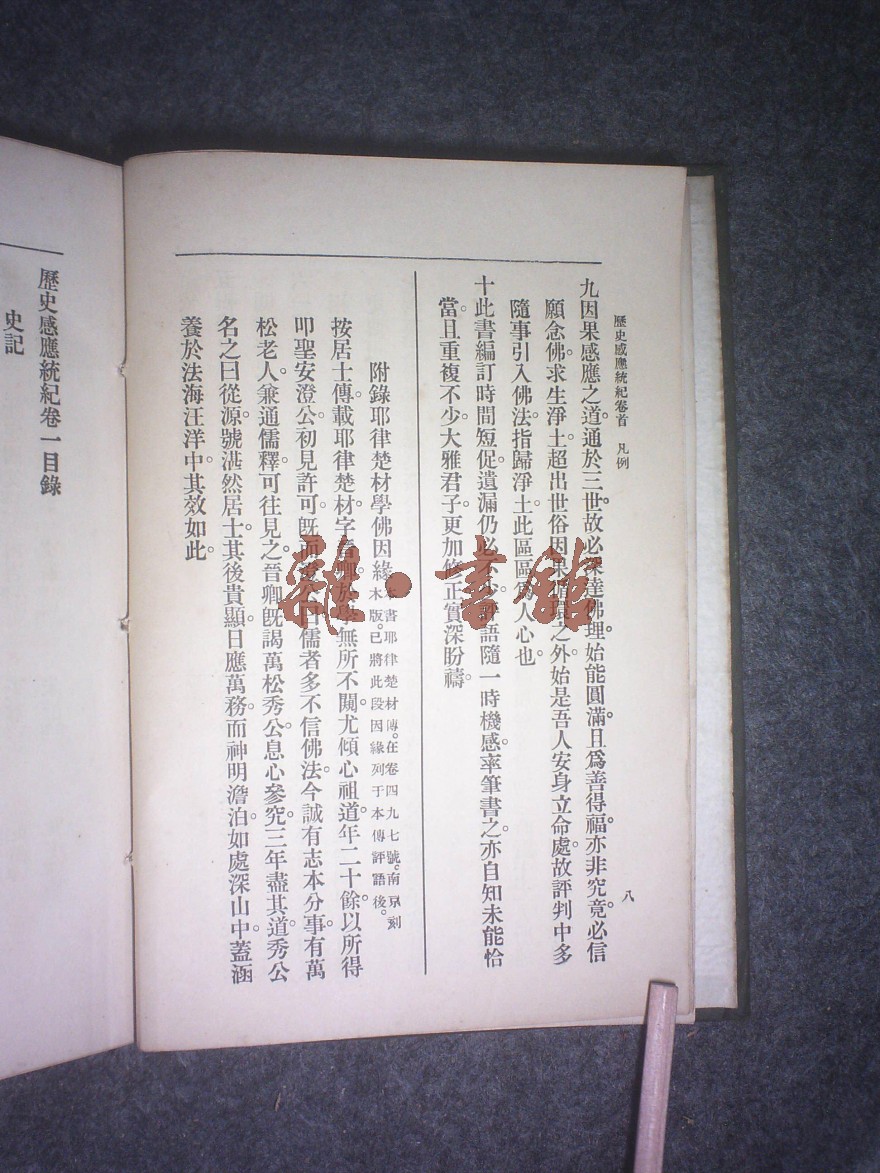 歷史感應統紀卷首　凡例
八
九因果感應之道。通於三世。故必深達佛理。始能圓滿。且爲善得福。亦非究竟。必信
願念佛。求生淨土。超出世俗因果循環之外。始是吾人安身立命處。故評判中多
隨事引入佛法。指歸淨土。此區區爲人心也。
十此書編訂時間短促。遺漏仍必不少。評語隨一時機感。率筆書之。亦自知未能恰
當。且重複不少。大雅君子。更加修正。實深盼禱。
附錄耶律楚材學佛因緣
本書耶律楚材傳。在卷四九七號。南京刻
木版。已將此段因緣列于本傳評語後。
按居士傳。載耶律楚材。字晉卿。於學無所不闚。尤傾心祖道。年二十餘。以所得
叩聖安澄公。初見許可。旣而澄公曰。儒者多不信佛法。今誠有志本分事。有萬
松老人。兼通儒釋。可往見之。晉卿旣謁萬松秀公。息心參究。三年盡其道。秀公
名之曰從源。號湛然居士。其後貴顯。日應萬務。而神明澹泊。如處深山中。蓋涵
養於法海汪洋中。其效如此。
歷史感應統紀卷一目錄
史記
雜·書館